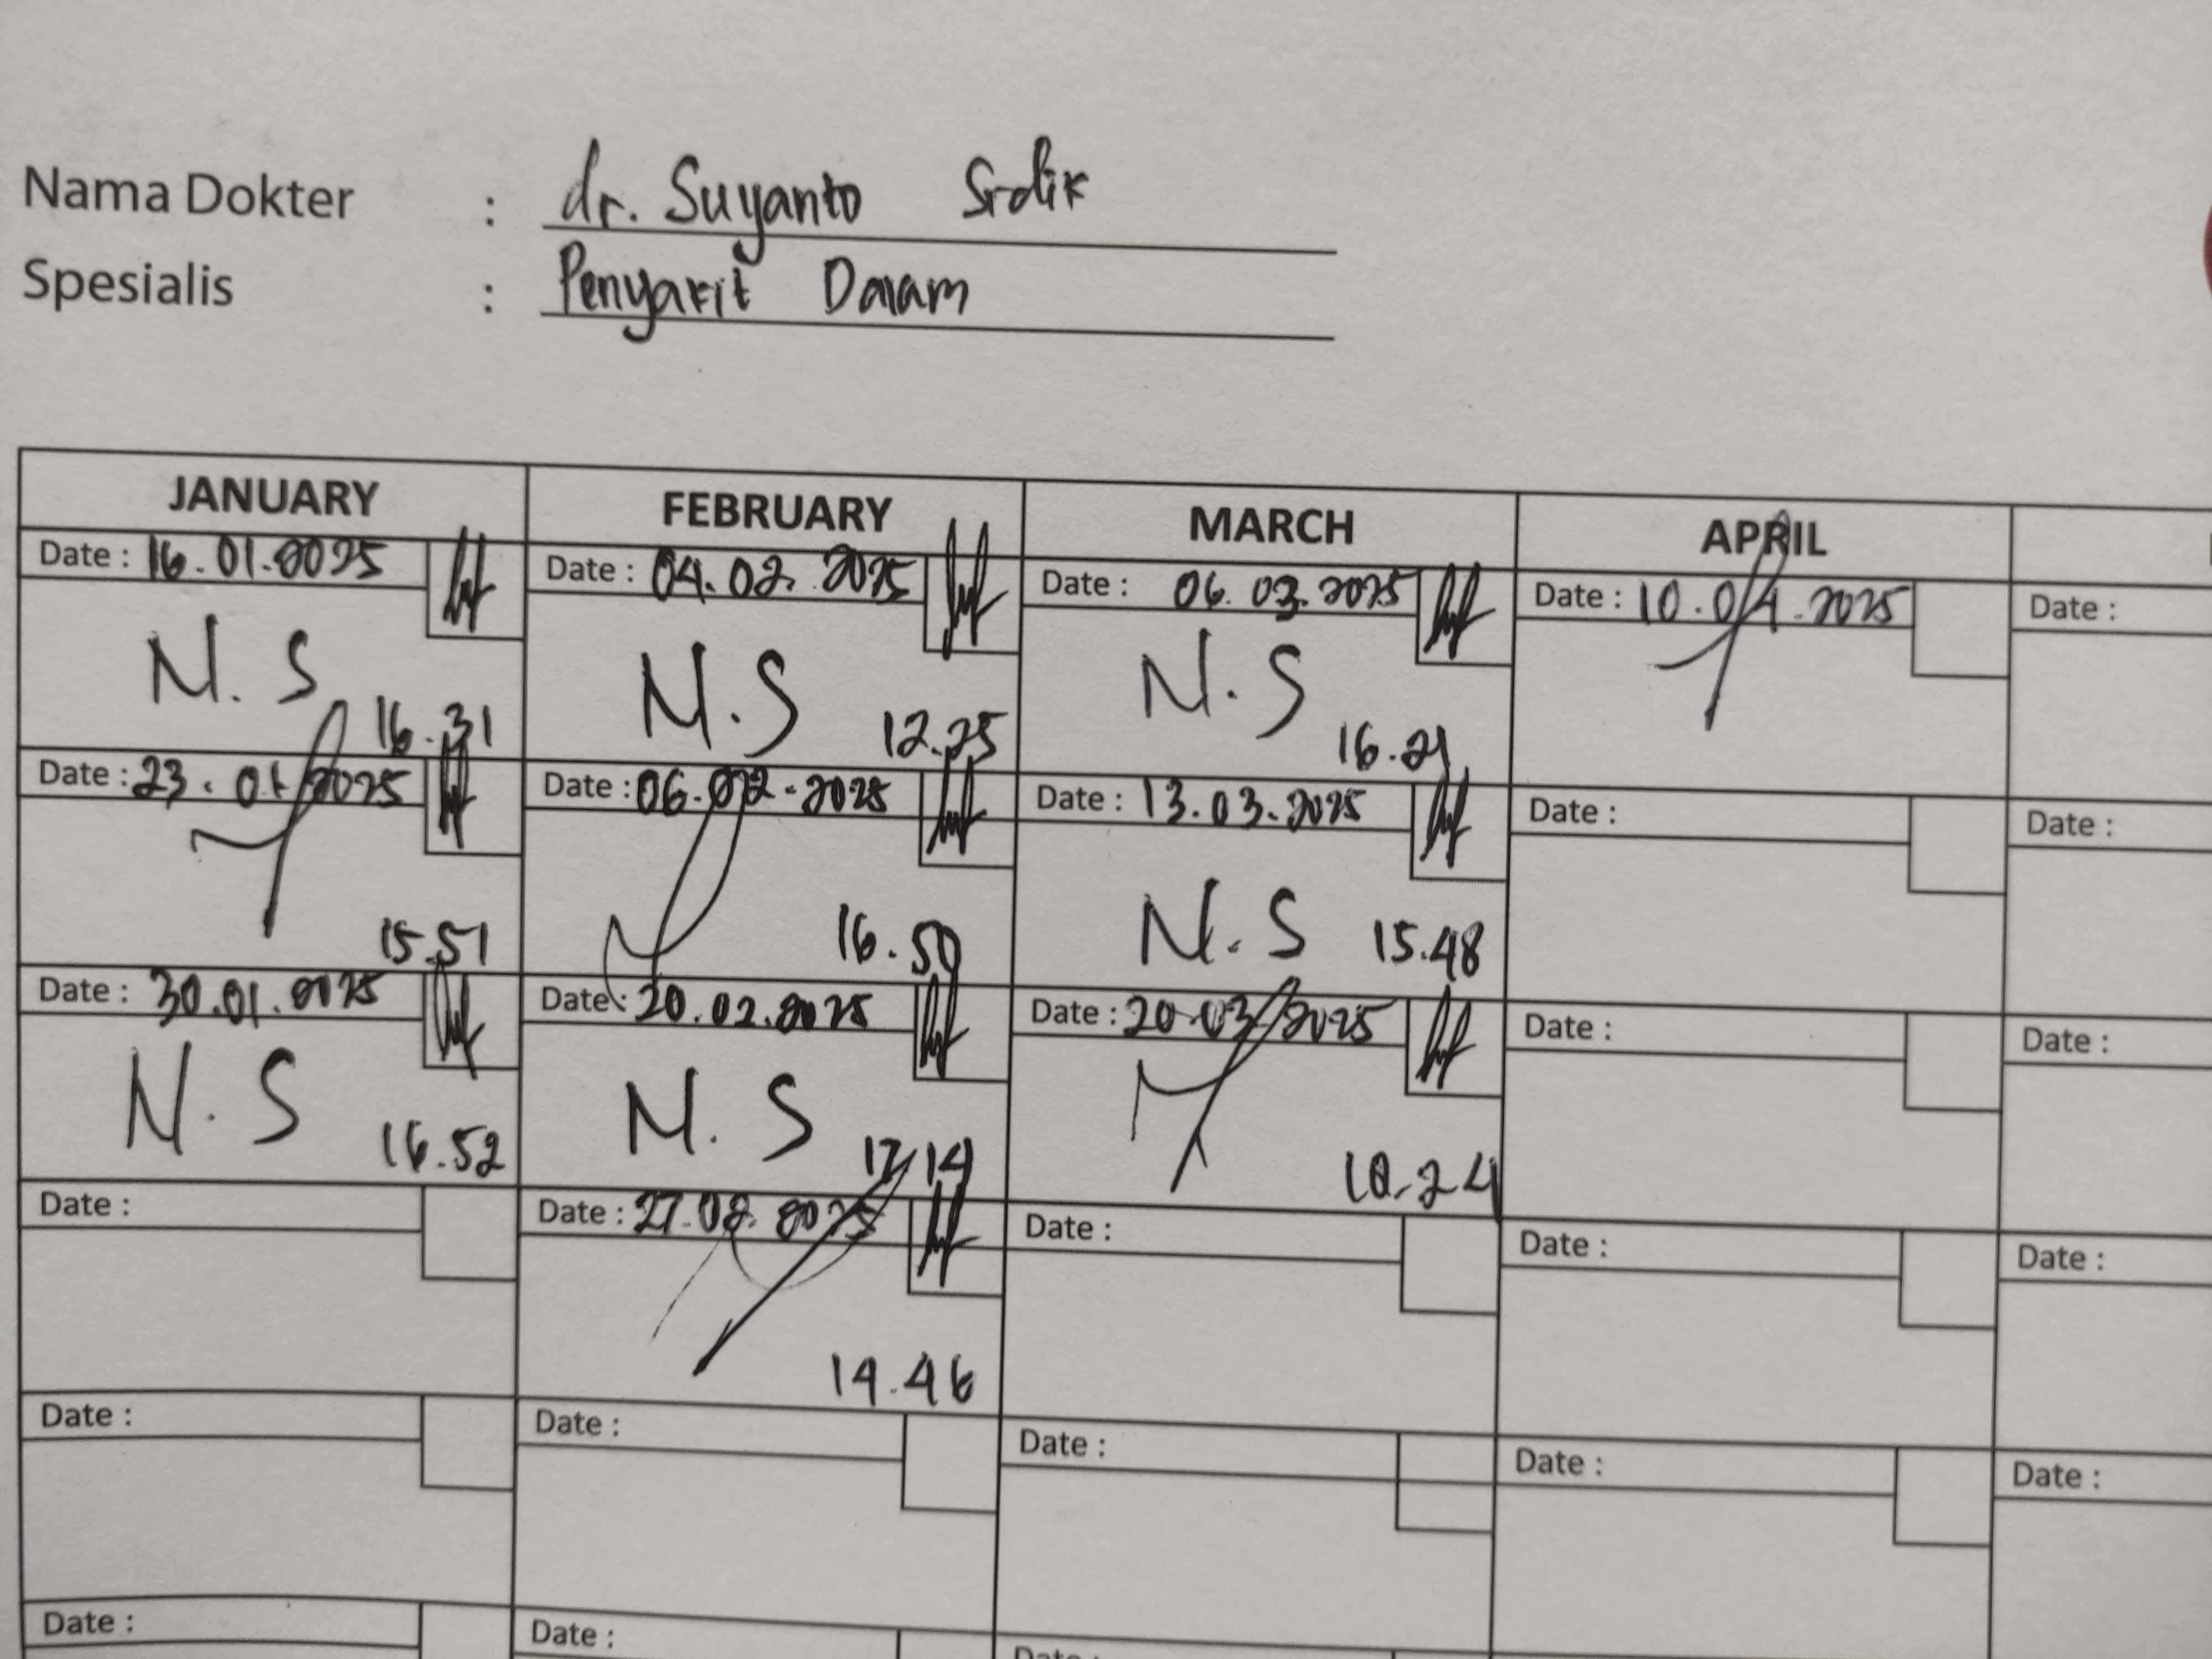 Nama Dokter : dr. Suyanto Sidik
Spesialis : Penyakit Dalam
JANUARY FEBRUARY MARCH APRIL
Date : 16.01.2025 Date : 04.02.2025 Date : 06.03.2025 Date : 10.04.2025 Date :
N.S N.S N.S
16.31 12.25 16.21
Date : 23.01.2025 Date : 06.02.2025 Date : 13.03.2025 Date : Date :
N.S
15.51 16.50 15.48
Date : 30.01.2025 Date : 20.02.2025 Date : 20.03.2025 Date : Date :
N.S N.S
16.52 17.14 10.24
Date : Date : 27.02.2025 Date : Date : Date :
14.46
Date : Date : Date : Date : Date :
Date : Date : Date :